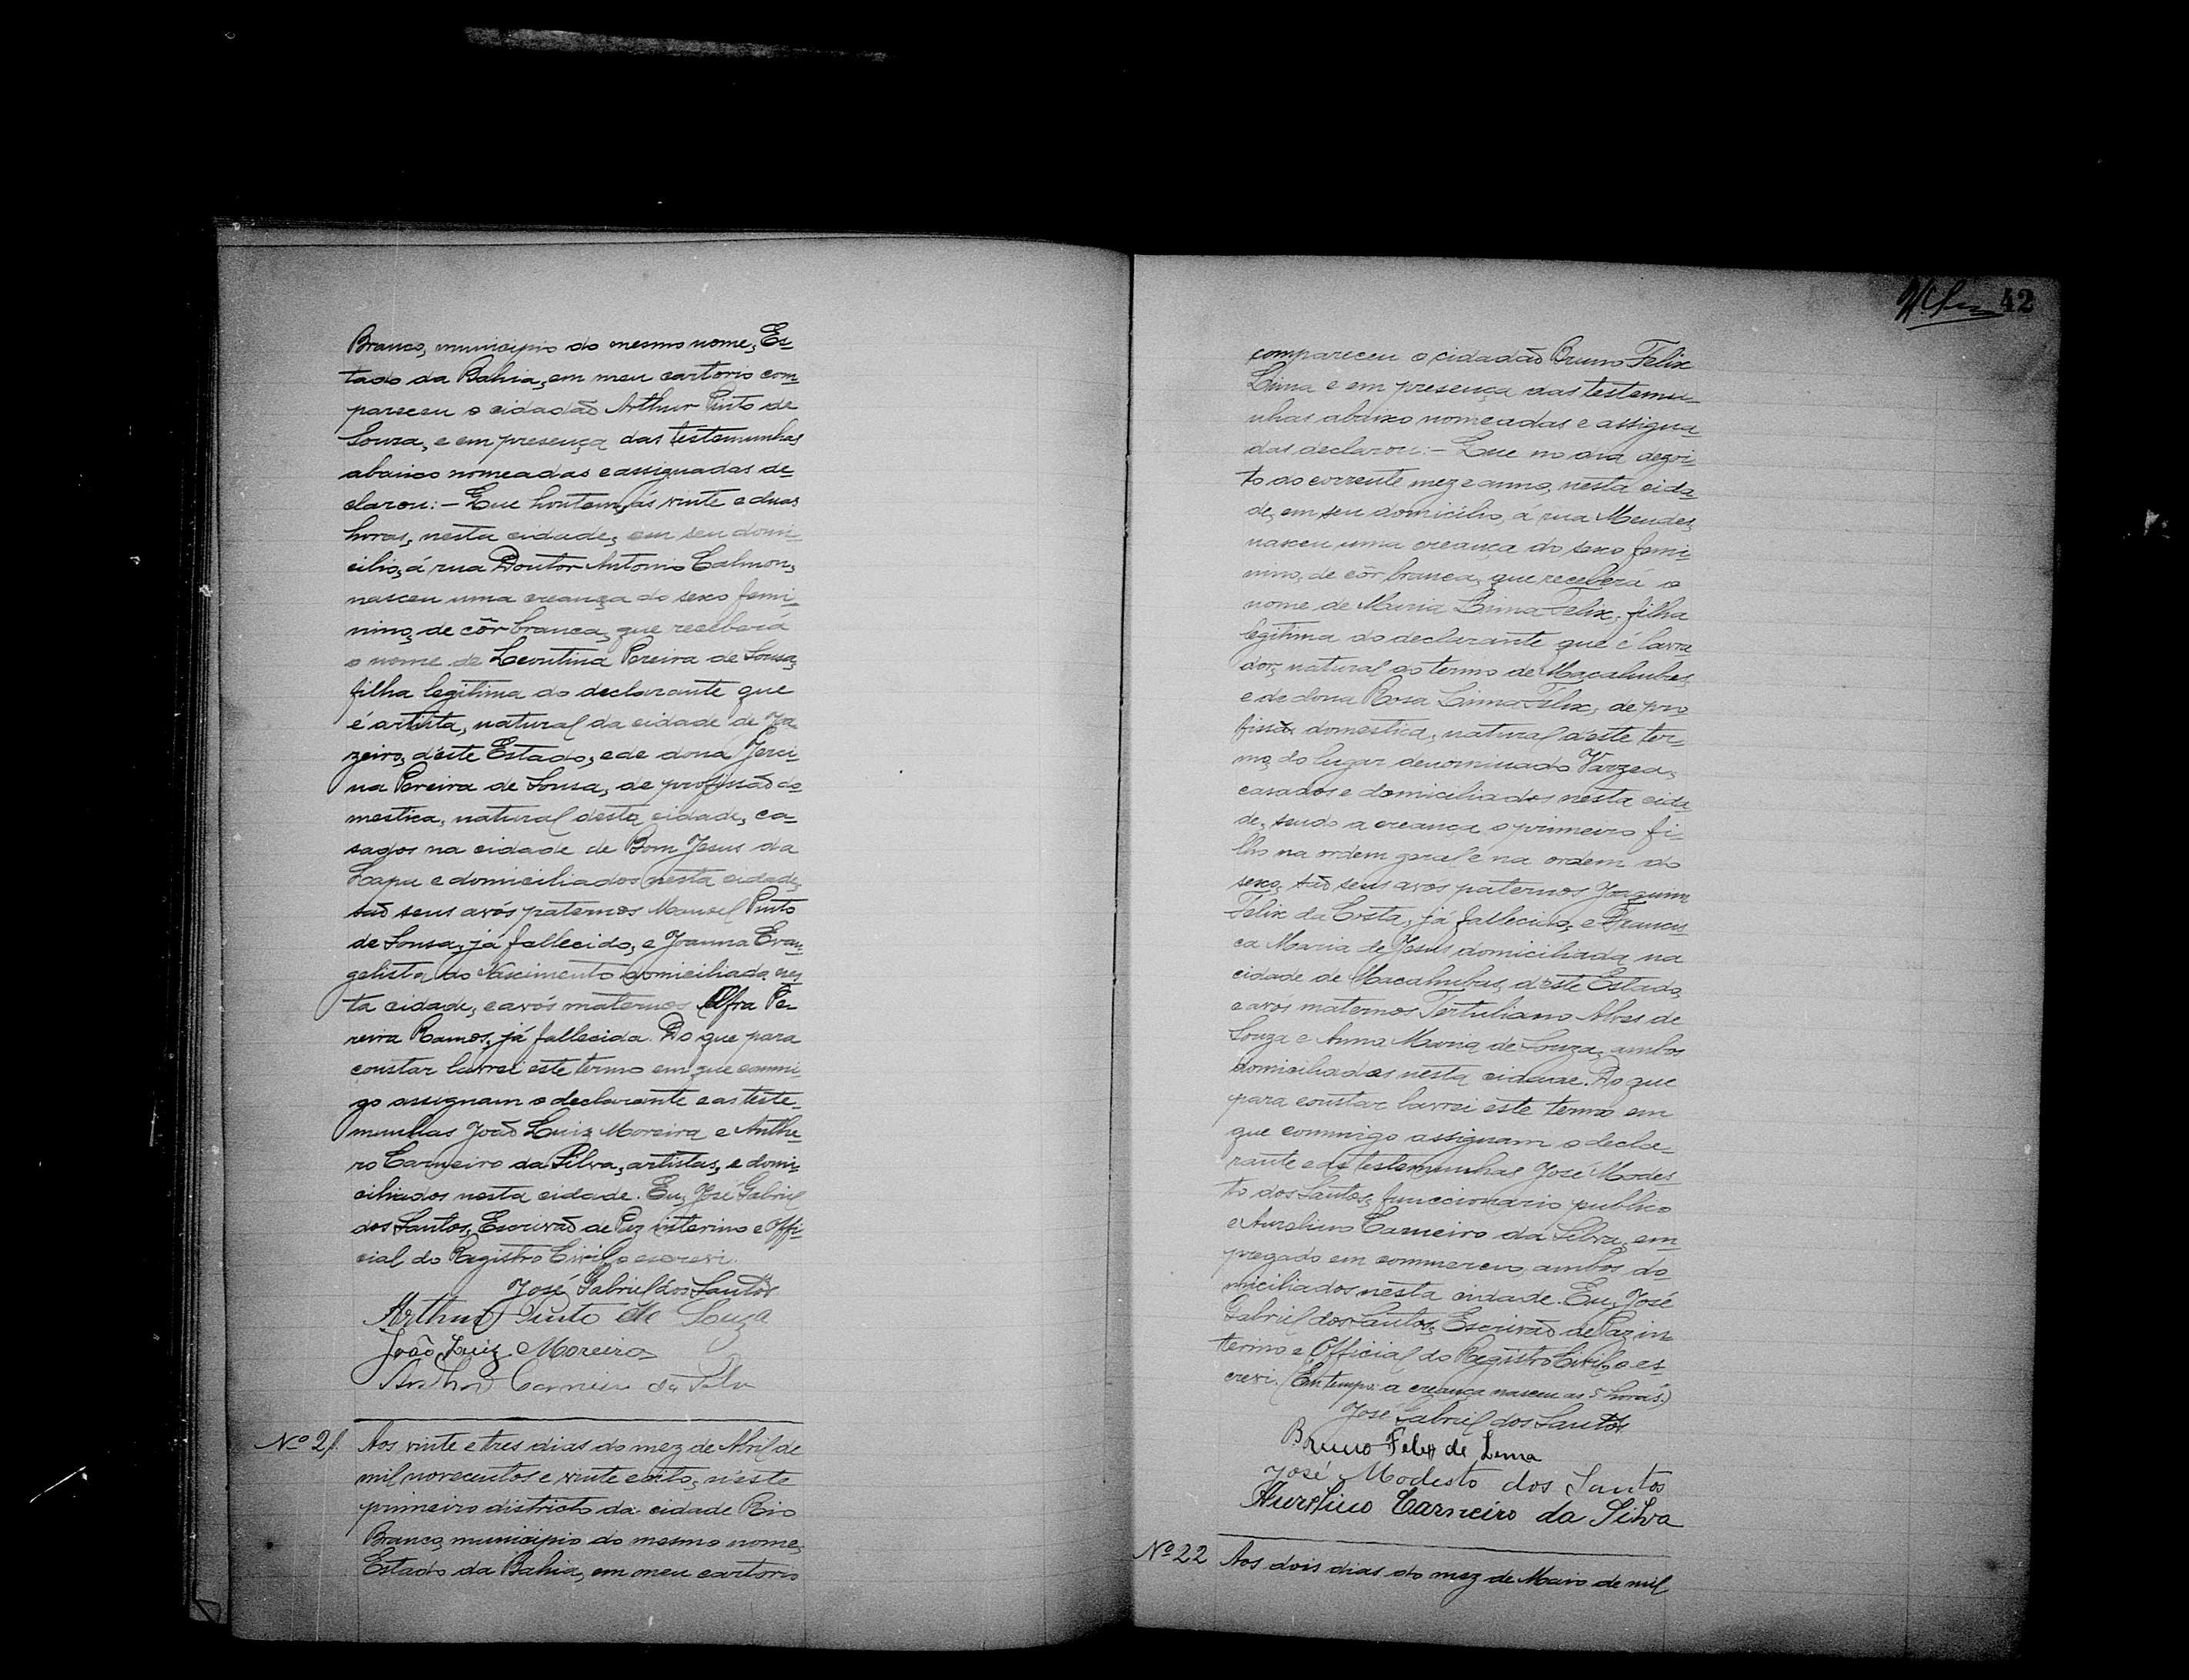 Branco, municipio do mesmo nome, Es-
tado da Bahia, em meu cartorio com-
pareceu o cidadão Arthur Pinto de
Souza, e em presença das testemunhas
abaixo nomeadas e assignadas de-
clarou:- Que hontem, ás vinte e duas
horas, nesta cidade, em seu domi-
cilio, á rua Doutor Antonio Calmon,
nasceu uma creança do sexo femi-
nino, de côr branca, que receberá
o nome de Leontina Pereira de Sousa,
filha legitima do declarante que
é artista, natural da cidade de Joa
zeiro, d'este Estado, e de dona Jesui-
na Pereira de Sousa, de profissão do-
mestica, natural desta cidade, ca-
sados na cidade de Bom Jesus da
Lapa e domiciliados nesta cidade,
são seus avós paternos Manoel Pinto
de Sousa, já fallecido, e Joanna Evan-
gelista do Nascimento domiciliada nes
ta cidade, e avós maternos Afra Pe-
reira Ramos, já fallecida. Do que para
constar lavrei este termo em que commi-
go assignam o declarante e as teste-
munhas João Luiz Moreira e Anthe
ro Carneiro da Silva, artistas, e domi-
ciliados nesta cidade. Eu, José Gabriel
dos Santos, Escrivão de Paz interino e Offi-
cial do Registro Civil, o escrevi.
José Gabriel dos Santos
Arthur Pinto de Souza
João Luiz Moreira
Carneiro da Silva
Nº 21. Aos vinte e tres dias do mez de Abril de
mil novecentos e vinte e oito, n'este
primeiro districto da cidade Rio
Branco, municipio do mesmo nome,
Estado da Bahia, em meu cartorio
42
compareceu o cidadão Bruno Felix
Lima e em presença das testemu-
nhas abaixo nomeadas e assigna-
das declarou:- Que no dia dezoi-
to do corrente mez e anno, nesta cida-
de, em seu domicilio, á rua Mendes,
nasceu uma creança do sexo femi-
nino, de côr branca, que receberá o
nome de Maria Lima Felix, filha
legitima do declarante que é lavra-
dor, natural do termo de Macahubas,
e de dona Rosa Lima Felix, de pro-
fissão domestica, natural d'este ter-
mo, do lugar denominado Varzea,
casados e domiciliados nesta cida
de, sendo a creança o primeiro fi-
lho na ordem geral e na ordem do
sexo, são seus avós paternos Joaquim
Felix da Costa, já fallecido, e Francis
ca Maria de Jesus domiciliada na
cidade de Macahubas, d'este Estado,
e avós maternos Tertuliano Alves de
Souza e Anna Maria de Souza, ambos
domiciliados nesta cidade. Do que
para constar lavrei este termo em
que commigo assignam o decla-
rante e as testemunhas José Modes-
to dos Santos, funccionario publico
e Aurelino Carneiro da Silva, em-
pregado em commercio, ambos do-
miciliados nesta cidade. Eu, José
Gabriel dos Santos, Escrivão de Paz in-
terino e Official do Registro Civil, o es-
crevi. (Em tempo: a creança nasceu as 5 horas.)
José Gabriel dos Santos
Bruno Felix de Lima
José Modesto dos Santos
Aurelino Carneiro da Silva
Nº 22 Aos dois dias do mez de Maio de mil